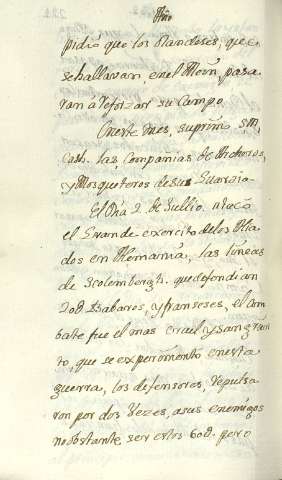 Año
pidió que los olandeses, que
se hallavan, en el Rhin, pasa
ran à reforzar su Campo.
En este mes, suprim S.M.
Cath. las Companias de Archeros,
y Mosqueteros de su Guardia
El Dia 2. de Jullio. atacò
el Grande exercito de los Alia
dos en Alemania, las lineas
de Scolembergh. que defendian
20U. Babaros, y franseses, el Com
bate fue el mas cruel y sangrien
to, que se experimentò en esta
guerra, los defensores, repulsa
ron por dos vezes, a sus enemigos
no ostante, ser estos 60U. pero